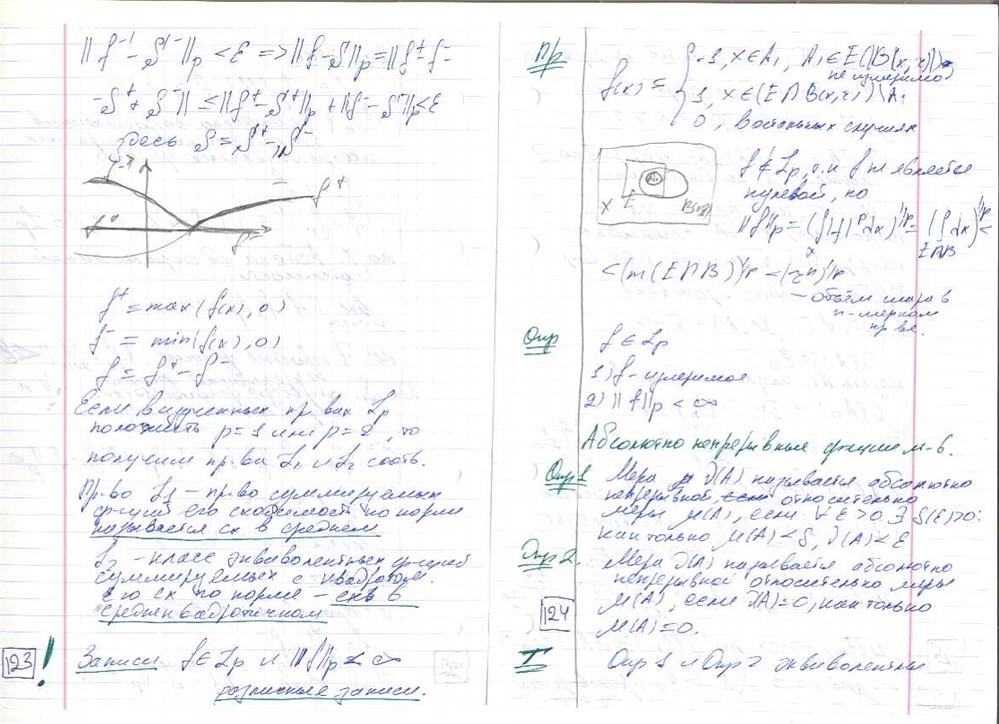 ||f⁻ - S⁻||p < ε => ||f-S||p = ||f⁺-f⁻-
-S⁺+S⁻|| ≤ ||f⁺-S⁺||p + ||f⁻-S⁻||p < ε
здесь S = S⁺-S⁻
f⁺
f⁻
f⁺ = max(f(x), 0)
f⁻ = min(f(x), 0)
f = f⁺ - f⁻
Если в изученных пр-вах Lp
положить p=1 или p=2, то
получим пр-ва L₁ и L₂ соотв.
Пр-во L₁ – пр-во суммируемых
функций его сходимость по норме
называется сх в среднем
L₂ - класс эквивалентных функций
суммируемых с квадратом.
Его сх по норме – сх в
среднеквадратичном
123 !
Записи f∈Lp и ||f||p < ∞
различные записи.
Пр
f(x) = { -1, x∈A₁, A₁∈E∩B(x,r)
не измеримо
1, x∈(E∩B(x,r))\A₁
0, в остальных случаях
X E A₁ B(x,r)
f∉Lp, т.к f не является
нулевой, но
||f||p = (∫|f|ᵖdx)^1/p = (∫dx)^1/p <
X E∩B
< (m(E∩B))^1/p < (rⁿ)^1/p
– объём шара в
n-мерном
пр-ве.
Опр
f∈Lp
1) f – измеримое
2) ||f||p < ∞
Абсолютно непрерывные функции м-в.
Опр1 Мера λ(A) называется абсолютно
непрерывной относительно
меры μ(A), если ∀ε>0 ∃ δ(ε)>0:
как только μ(A)<δ, λ(A)<ε
Опр2. Мера λ(A) называется абсолютно
непрерывной относительно меры
μ(A), если λ(A)=0, как только
μ(A)=0.
124
T Опр 1 и Опр 2 эквивалентны